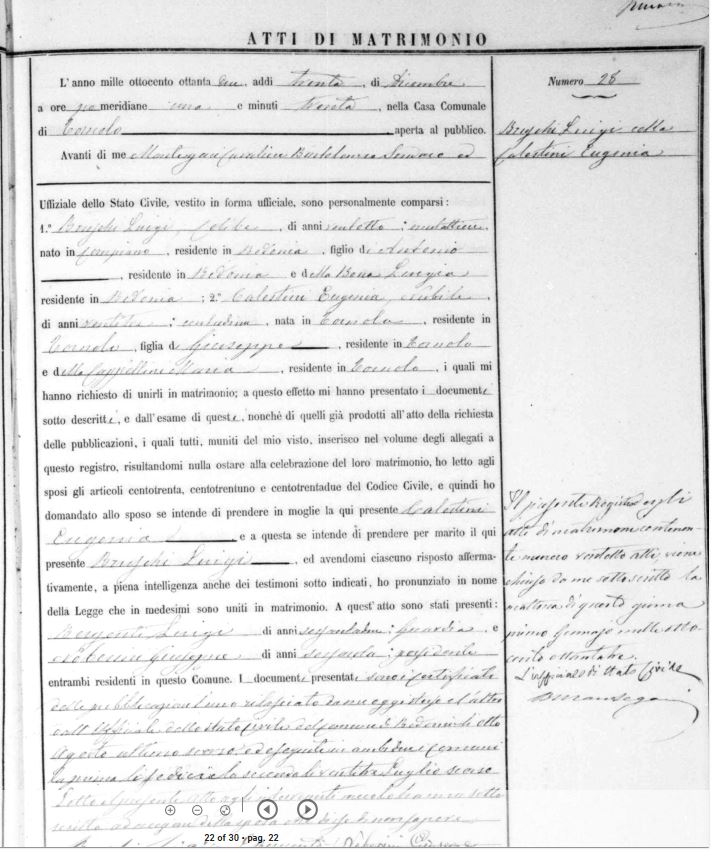 ATTI DI MATRIMONIO
L'anno mille ottocento ottanta due, addi trenta, di Dicembre
a ore pomeridiane una e minuti trenta, nella Casa Comunale
di Tornolo aperta al pubblico.
Avanti di me Cavaliere Bartolomeo Sindaco ed
Uffiziale dello Stato Civile, vestito in forma uffiziale, sono personalmente comparsi:
1.° Bruschi Luigi, celibe, di anni ventotto; mulattiere,
nato in Compiano, residente in Bedonia, figlio di Antonio
, residente in Bedonia e della Bona Luigia
residente in Bedonia; 2.° Calestini Eugenia, nubile,
di anni; contadina, nata in Tornolo, residente in
Tornolo, figlia di Giuseppe, residente in Tornolo
e della Cappellini Maria, residente in Tornolo, i quali mi
hanno richiesto di unirli in matrimonio; a questo effetto mi hanno presentato i documenti
sotto descritti, e dall'esame di questi, nonchè di quelli già prodotti all'atto della richiesta
delle pubblicazioni, i quali tutti, muniti del mio visto, inserisco nel volume degli allegati a
questo registro, risultandomi nulla ostare alla celebrazione del loro matrimonio, ho letto agli
sposi gli articoli centotrenta, centotrentuno e centotrentadue del Codice Civile, e quindi ho
domandato allo sposo se intende di prendere in moglie la qui presente Calestini
Eugenia e a questa se intende di prendere per marito il qui
presente Bruschi Luigi, ed avendomi ciascuno risposto afferma-
tivamente, a piena intelligenza anche dei testimoni sotto indicati, ho pronunziato in nome
della Legge che in medesimi sono uniti in matrimonio. A quest'atto sono stati presenti:
Luigi di anni sessantadue; Guardia, e
Giuseppe di anni sessanta; possidente
entrambi residenti in questo Comune. I documenti presentati sono i certificati
delle pubblicazioni l'uno rilasciato da me oggi stesso e l'altro
dall'Uffiziale dello stato civile del comune di Bedonia li otto
Agosto ultimo scorso, ed eseguite in ambidue i comuni
la prima la seconda li Luglio scorso
Letto il presente atto agli intervenuti
Numero 28
Bruschi Luigi colla
Calestini Eugenia
Il presente Registro degli
atti di matrimonio contenen-
te numero ventotto atti, viene
chiuso da me sottoscritto la
mattina di questo giorno
primo Gennajo mille otto-
cento ottantatre.
L'uffiziale di Stato Civile
22 of 30 - pag. 22